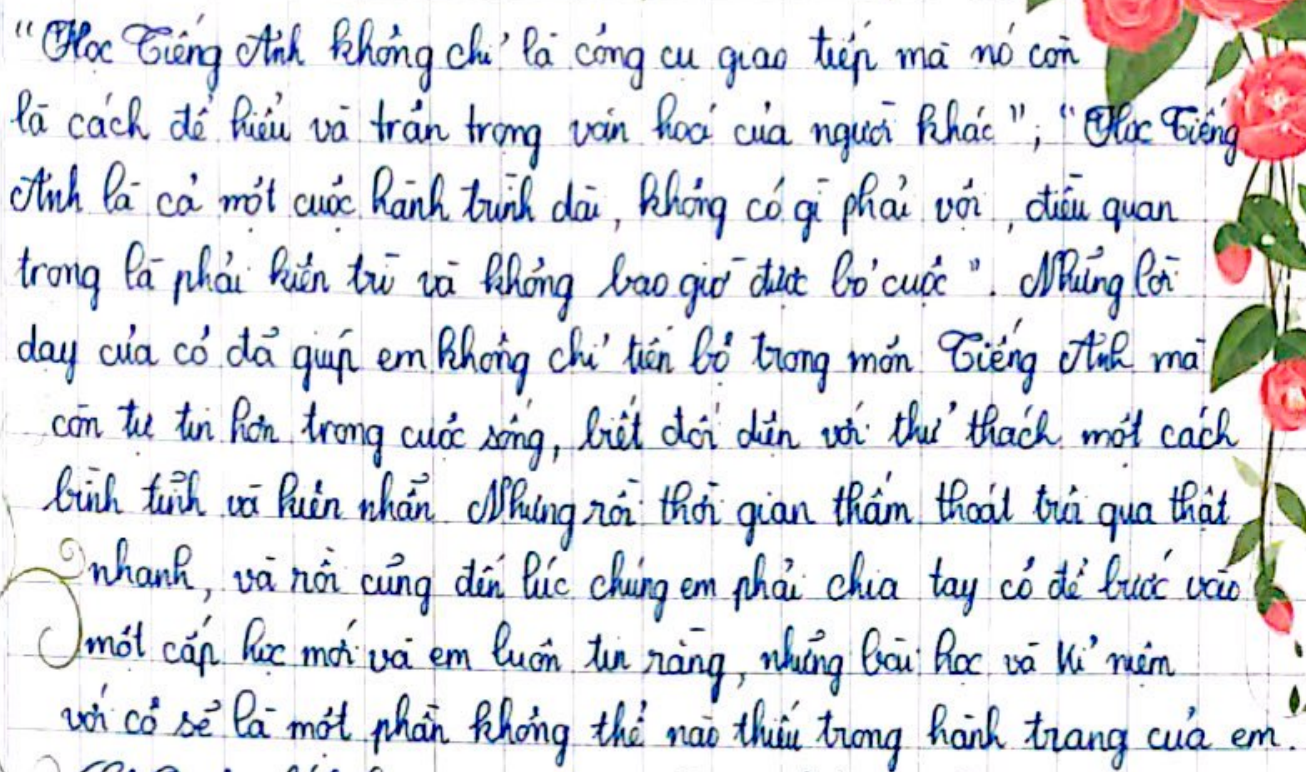 “Học Tiếng Anh không chỉ là công cụ giao tiếp mà nó còn
là cách để hiểu và trân trọng văn hoá của người khác”; “Học Tiếng
Anh là cả một cuộc hành trình dài, không có gì phải vội, điều quan
trọng là phải kiên trì và không bao giờ được bỏ cuộc”. Những lời
dạy của cô đã giúp em không chỉ tiến bộ trong môn Tiếng Anh mà
còn tự tin hơn trong cuộc sống, biết đối diện với thử thách một cách
bình tĩnh và kiên nhẫn. Nhưng rồi thời gian thấm thoát trôi qua thật
nhanh, và rồi cũng đến lúc chúng em phải chia tay cô để bước vào
một cấp học mới và em luôn tin rằng, những bài học và kỉ niệm
với cô sẽ là một phần không thể nào thiếu trong hành trang của em.